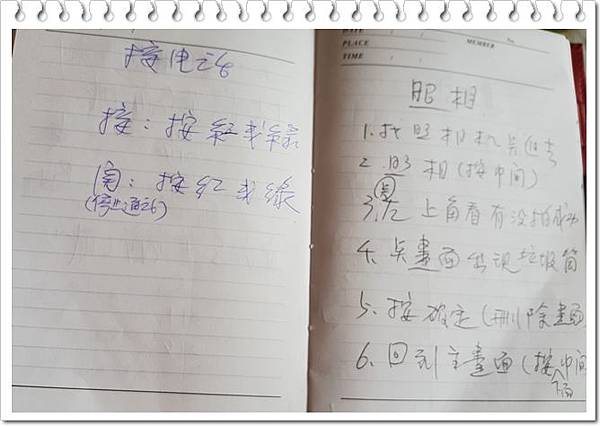 接电话
接：按红或綠
关：按红或綠
(停止通话)
DATE / / No.
PLACE MEMBER
TIME / /
照相
1.找照相机点进去
2.照相(按中间)
3.左上角看有没拍成功
4.点畫面出现垃圾筒
5.按确定(删除畫面
6.回到主畫面(按中间
下面